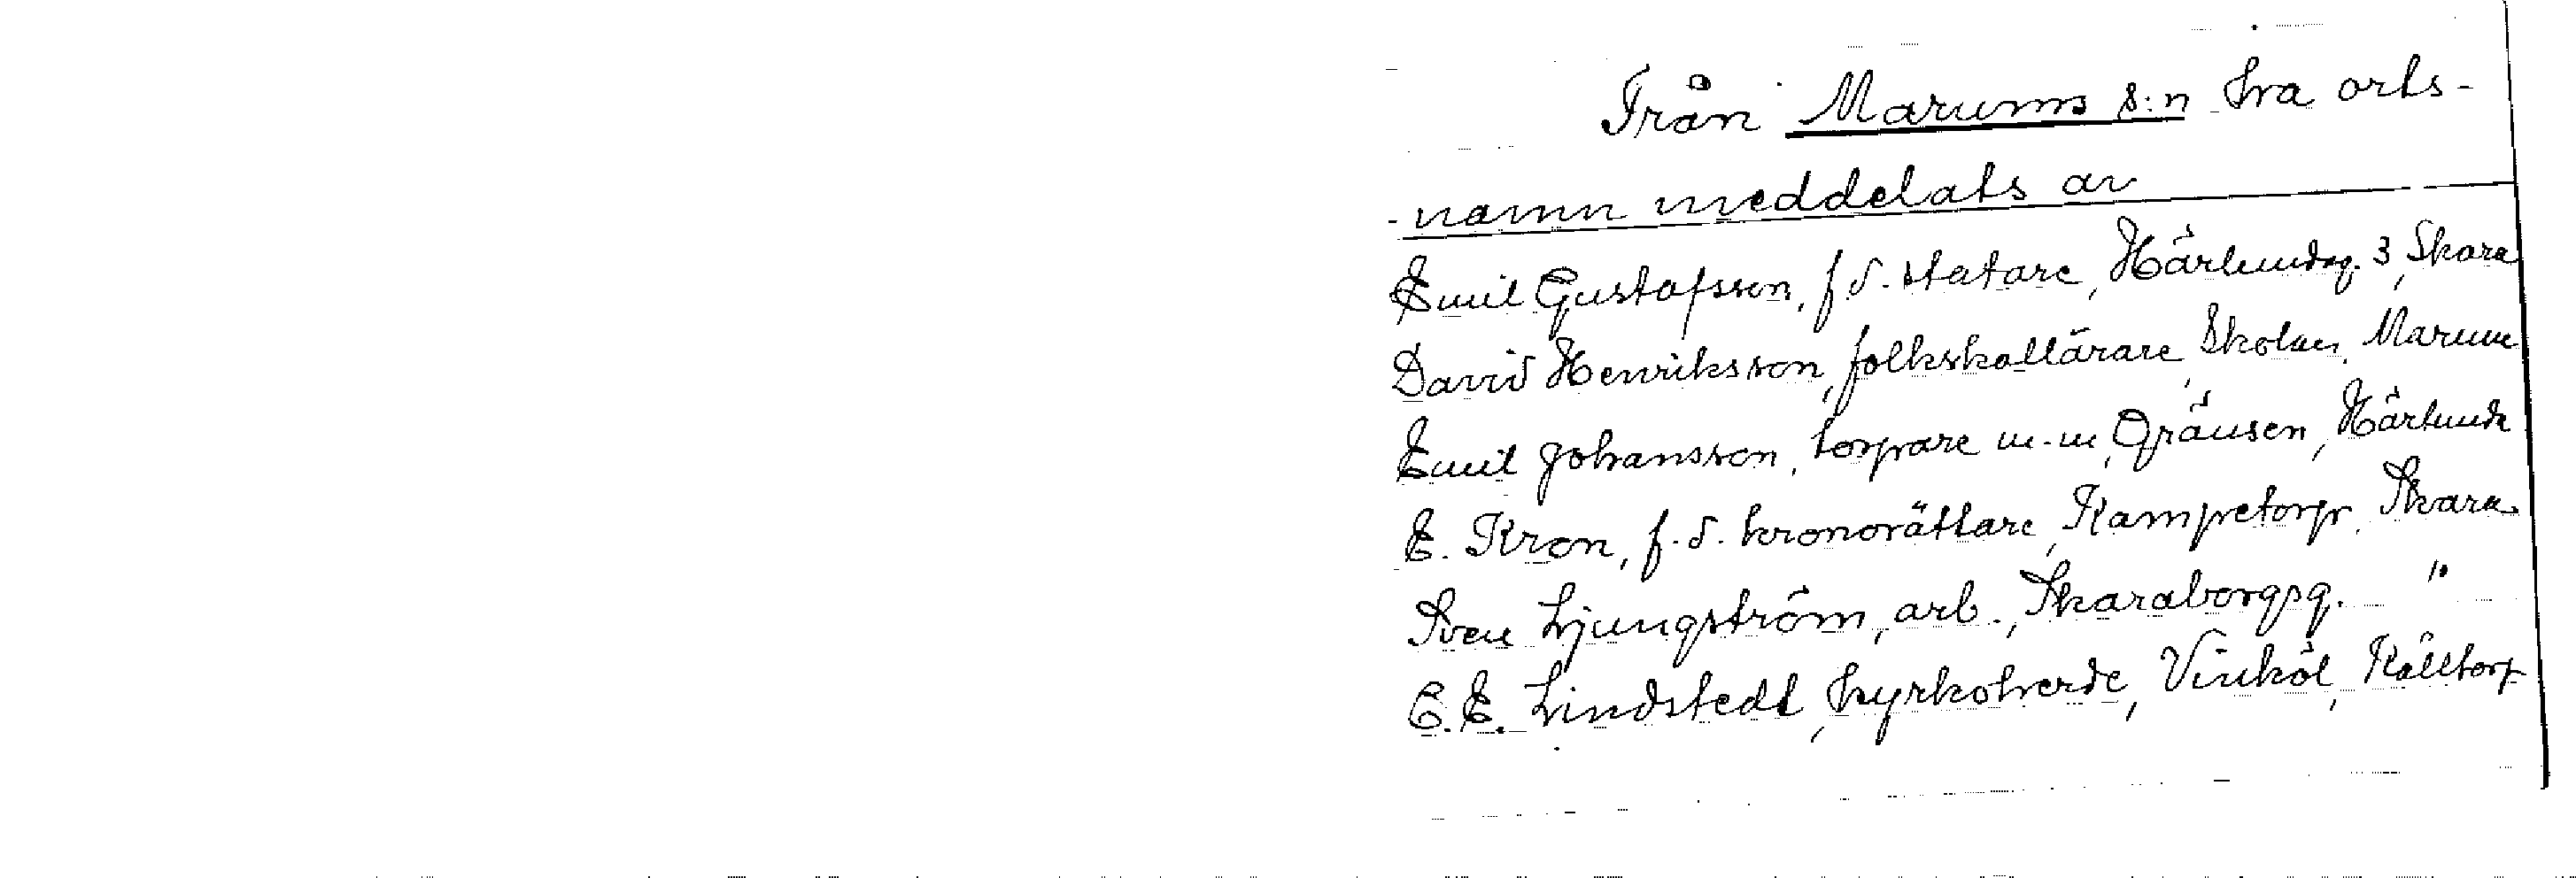 Från Marums s:n ha orts-
-namn meddelats av
Emil Gustafsson, f.d. statare, Härlundag. 3, Skara
David Henriksson, folkskollärare, Skolan, Marum
Emil Johansson, torpare m.m, Gränsen, Härlunda
E. Kron, f.d. kronorättare, Kampetorp, Skara
Sven Ljungström, arb., Skaraborgsg. "
C.E. Lindstedt, kyrkoherde, Vinköl, Källtorp